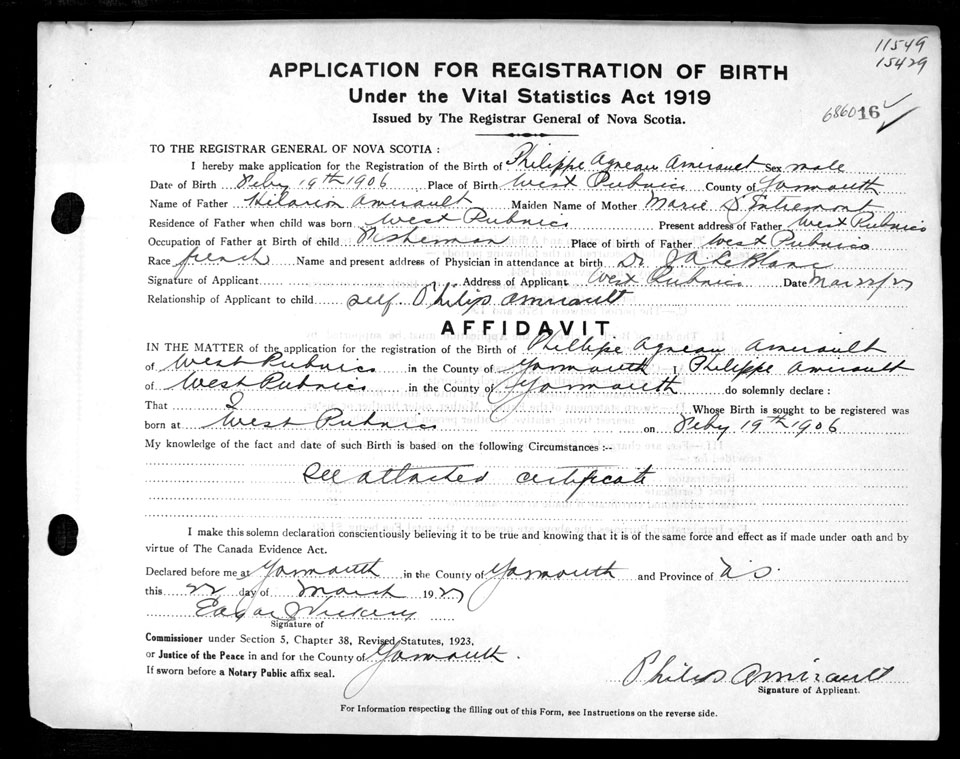 11549
15429
APPLICATION FOR REGISTRATION OF BIRTH
Under the Vital Statistics Act 1919
6860 16
Issued by The Registrar General of Nova Scotia.
TO THE REGISTRAR GENERAL OF NOVA SCOTIA :
I hereby make application for the Registration of the Birth of Philippe Agneau Amirault Sex male
Date of Birth Feby 19th 1906 Place of Birth West Pubnico County of Yarmouth
Name of Father Hilarion Amirault Maiden Name of Mother Marie D'Entremont
Residence of Father when child was born West Pubnico Present address of Father West Pubnico
Occupation of Father at Birth of child Fisherman Place of birth of Father West Pubnico
Race french Name and present address of Physician in attendance at birth Dr J A LeBlanc
Signature of Applicant Address of Applicant West Pubnico Date Mar 22/27
Relationship of Applicant to child self Philip Amirault
AFFIDAVIT
IN THE MATTER of the application for the registration of the Birth of Phillipe Agneau Amirault
of West Pubnico in the County of Yarmouth I Philippe Amirault
of West Pubnico in the County of Yarmouth do solemnly declare :
That I Whose Birth is sought to be registered was
born at West Pubnico on Feby 19th 1906
My knowledge of the fact and date of such Birth is based on the following Circumstances :--
See attached certificate
I make this solemn declaration conscientiously believing it to be true and knowing that it is of the same force and effect as if made under oath and by
virtue of The Canada Evidence Act.
Declared before me at Yarmouth in the County of Yarmouth and Province of N.S.
this 22 day of March 1927
Edgar Vickery
Signature of
Commissioner under Section 5, Chapter 38, Revised Statutes, 1923,
or Justice of the Peace in and for the County of Yarmouth.
If sworn before a Notary Public affix seal.
Philip Amirault
Signature of Applicant.
For Information respecting the filling out of this Form, see Instructions on the reverse side.